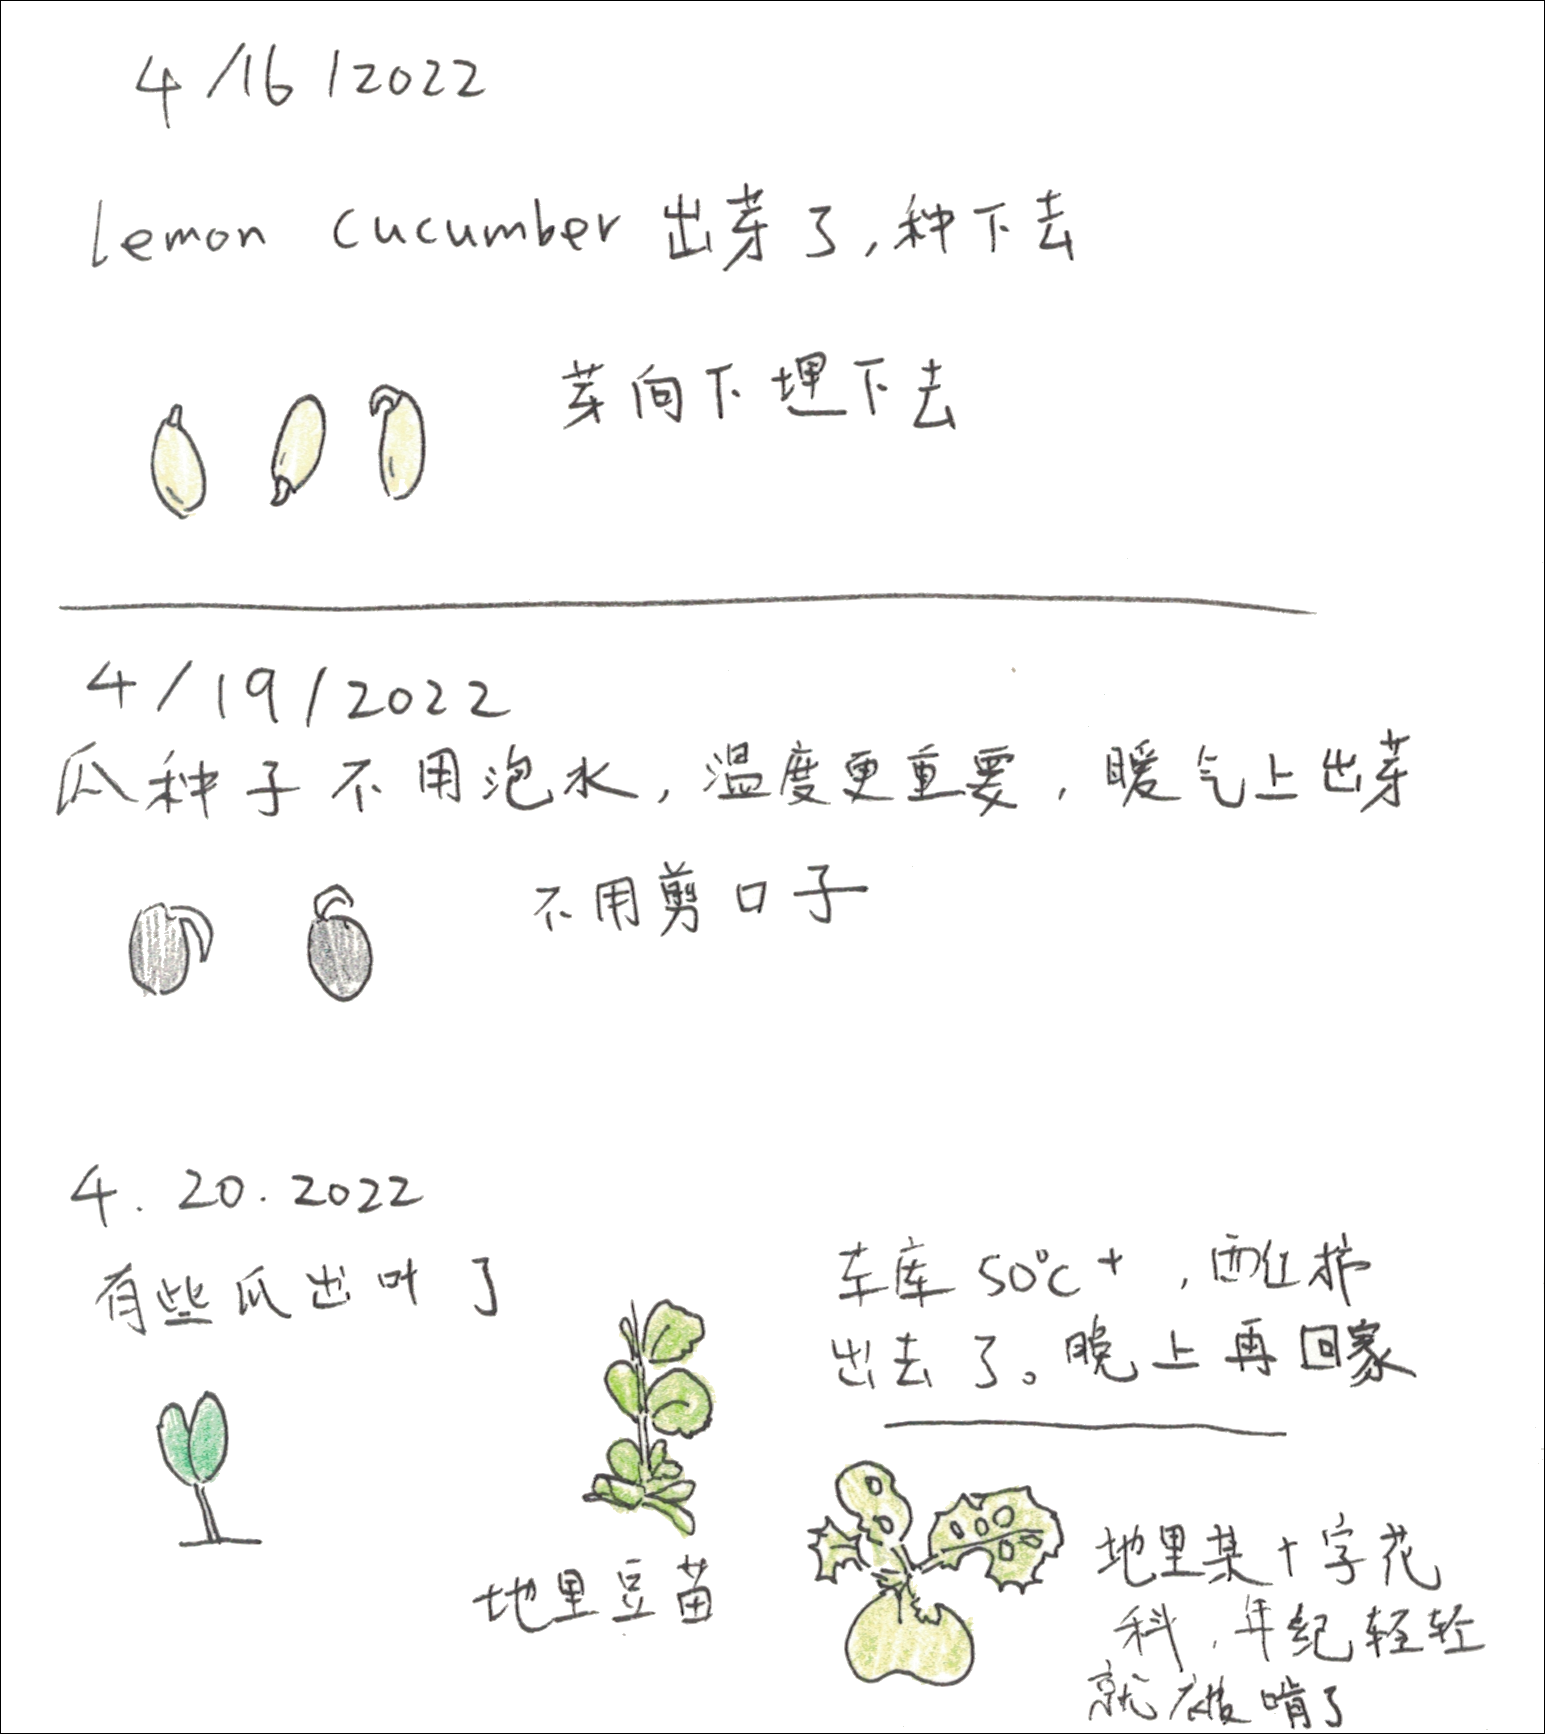 4/16/2022
lemon cucumber 出芽了,种下去
芽向下埋下去
4/19/2022
瓜种子不用泡水,温度更重要,暖气上出芽
不用剪口子
4.20.2022
有些瓜出叶了
车库50℃+,西红柿
出去了。晚上再回家
地里豆苗
地里某十字花
科,年纪轻轻
就被啃了